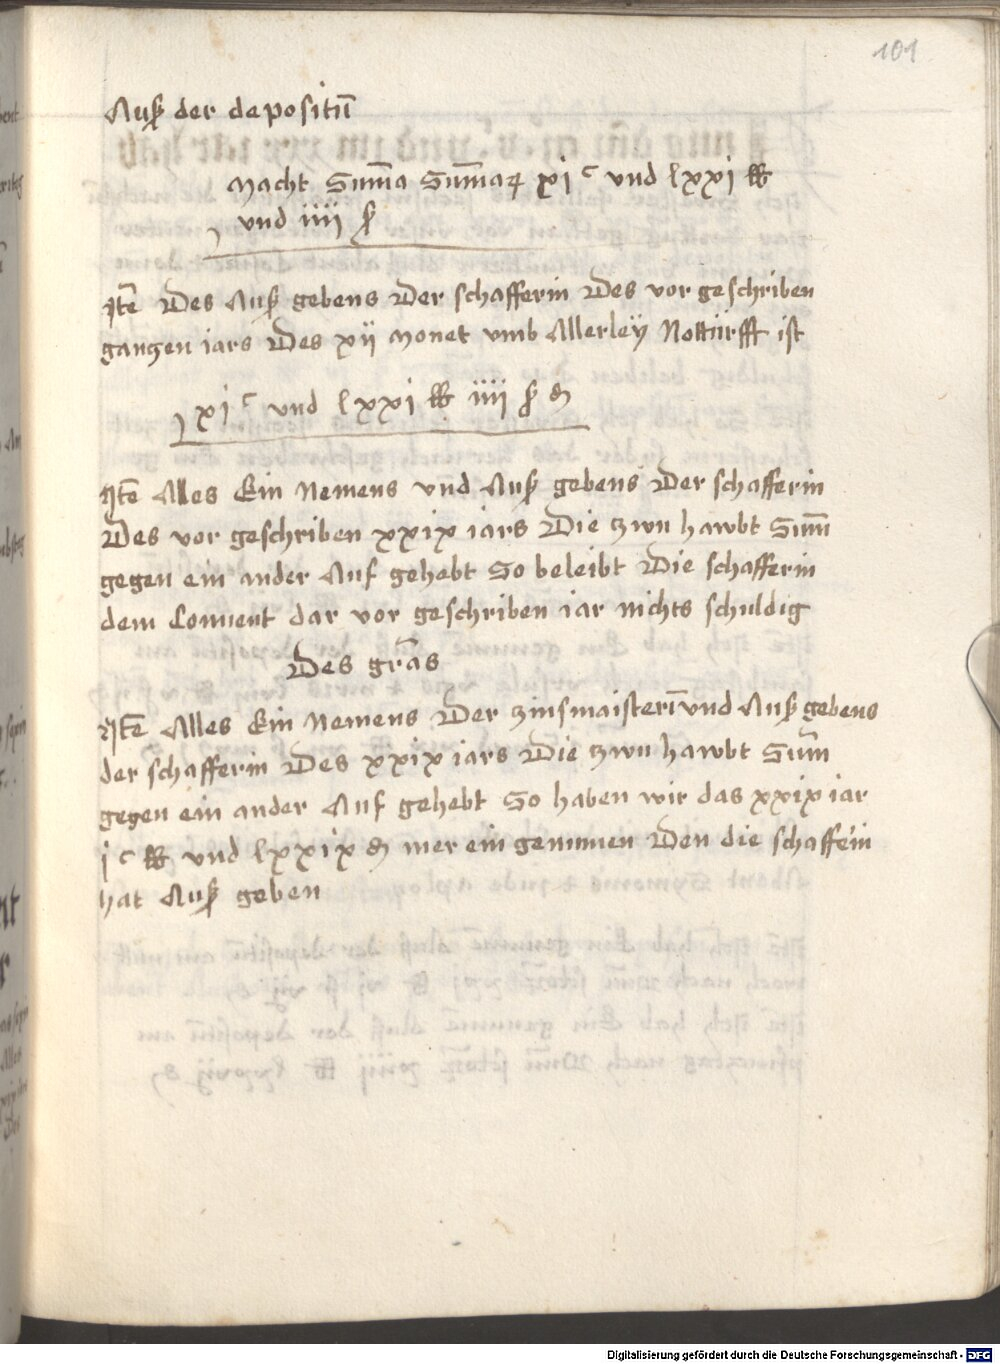 101
Auß der depositū
Macht Sum̄a Sum̄aꝝ xi c und lxxi ℔
und iiij ß
Itē Des Auß gebens Der schafferin Des vor geschriben
ganczen iars Des xij Monet vmb Allerley Notturfft ist
xi c und lxxi ℔ iiij ß ₰
Itē Alles Ein Nemens vnd Auß gebens Der schafferin
Des vor geschriben xxix iars Die zwu hawbt Sum̄
gegen ein ander Auf gehebt So beleibt Die schafferin
dem Conuent dar vor geschriben iar nichts schuldig
Des gr̄as
Itē Alles Ein Nemens Der zinsmaisterī vnd Auß gebens
der schafferin Des xxix iars Die zwu hawbt Sum̄
gegen ein ander Auf gehebt So haben wir das xxix iar
j c ℔ vnd lxxix ₰ mer ein genumen Den die schafferin
hat Auß geben
Digitalisierung gefördert durch die Deutsche Forschungsgemeinschaft - DFG